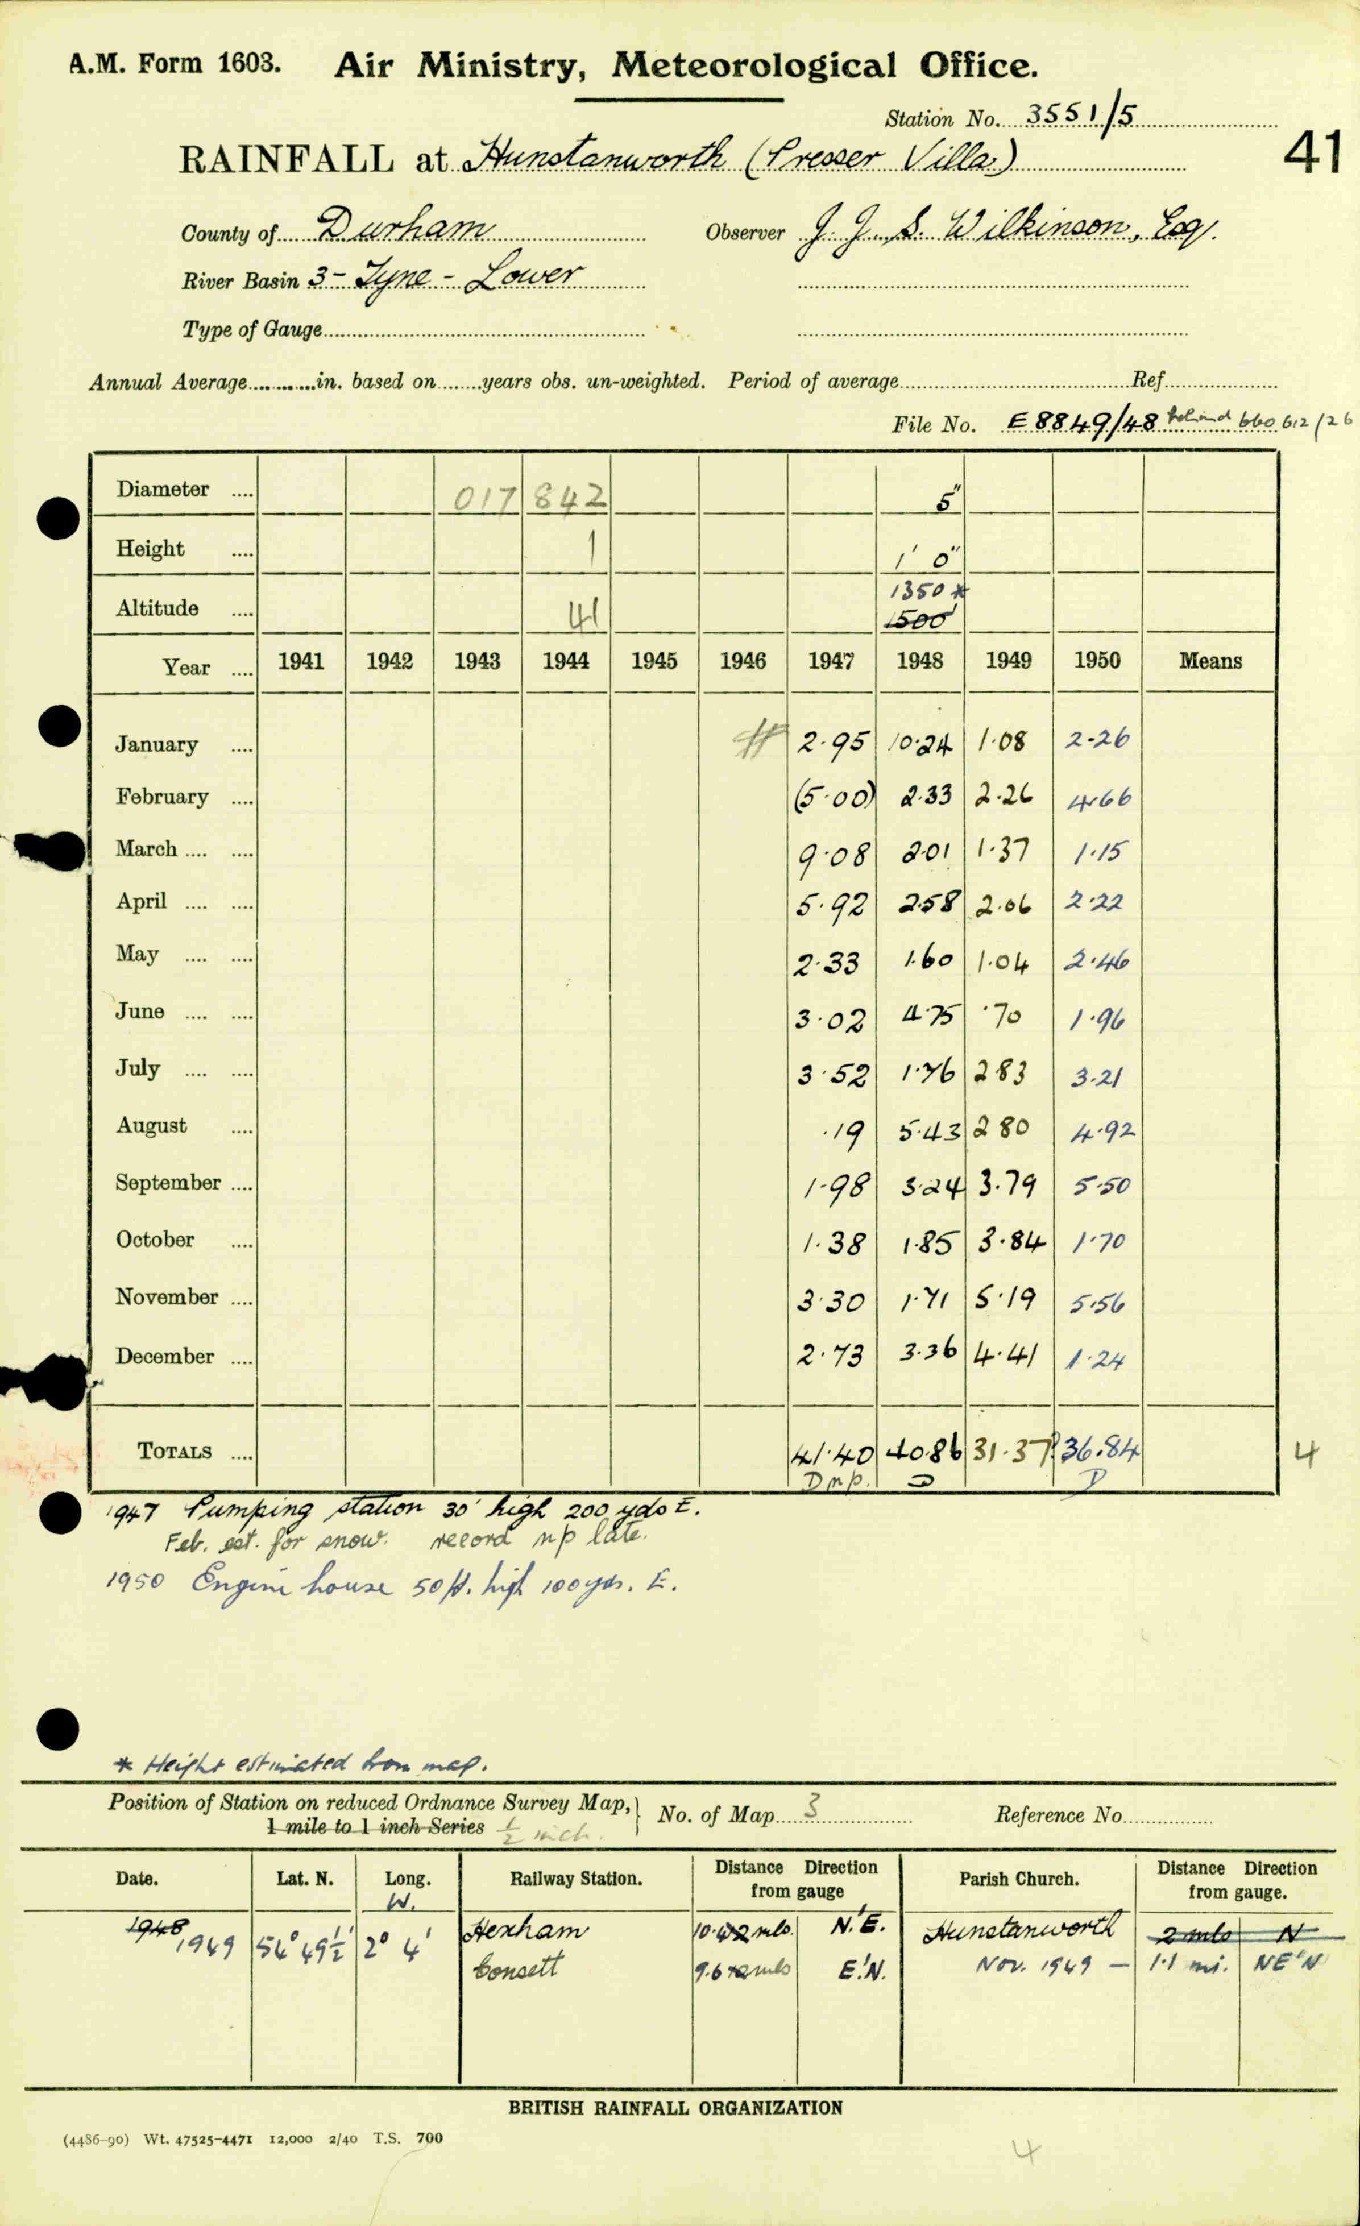 A.M. Form 1603. Air Ministry, Meteorological Office.
Station No. 3551/5
41
RAINFALL at Hunstanworth (Presser Villa)
County of Durham Observer J. J. S. Wilkinson, Esq.
River Basin 3 - Tyne - Lower
Type of Gauge
Annual Average in. based on years obs. un-weighted. Period of average Ref.
File No. E 8849/48 behind 660 612/26
Diameter 017 842 5"
Height 1 1' 0"
1350 *
Altitude 41 1500'
Year 1941 1942 1943 1944 1945 1946 1947 1948 1949 1950 Means
January 2.95 10.24 1.08 2.26
February (5.00) 2.33 2.26 4.66
March 9.08 2.01 1.37 1.15
April 5.92 2.58 2.06 2.22
May 2.33 1.60 1.04 2.46
June 3.02 4.75 .70 1.96
July 3.52 1.76 2.83 3.21
August .19 5.43 2.80 4.92
September 1.98 3.24 3.79 5.50
October 1.38 1.85 3.84 1.70
November 3.30 1.71 5.19 5.56
December 2.73 3.36 4.41 1.24
TOTALS 41.40 40.86 31.37? 36.84 4
D np. D D
1947 Pumping station 30' high 200 yds E.
Feb. est. for snow. record n/p late.
1950 Engine house 50 ft. high 100 yds. E.
* Height estimated from map.
Position of Station on reduced Ordnance Survey Map, No. of Map 3 Reference No.
1 mile to 1 inch Series ½ inch.
Date. Lat. N. Long. W. Railway Station. Distance Direction from gauge Parish Church. Distance Direction from gauge.
1948 1949 54° 49½' 2° 4' Hexham 10.42 mls. N.'E. Hunstanworth 2 mls N
Consett 9.6 mls E.'N. Nov. 1949 — 1.1 mi. NE'N
BRITISH RAINFALL ORGANIZATION
(4486-90) Wt. 47525-4471 12,000 2/40 T.S. 700
4